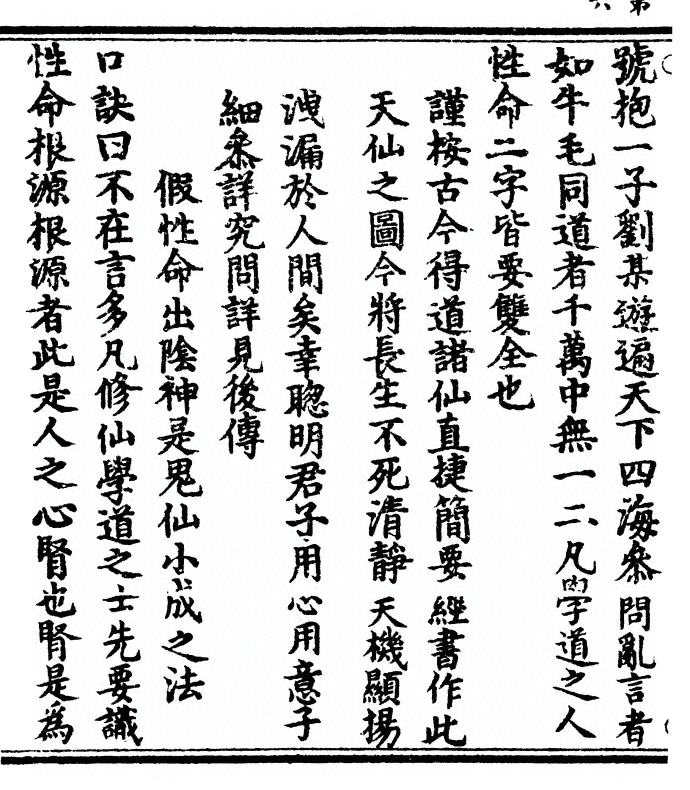 號抱一子劉某遊遍天下四海叅問亂言者
如牛毛同道者千萬中無一二凡學道之人
性命二字皆要雙全也
謹按古今得道諸仙直捷簡要經書作此
天仙之圖今將長生不死清靜天機顯揚
洩漏於人間矣幸聰明君子用心用意子
細叅詳究問詳見後傳
假性命出陰神是鬼仙小成之法
口訣曰不在言多凡修仙學道之士先要識
性命根源根源者此是人之心腎也腎是為